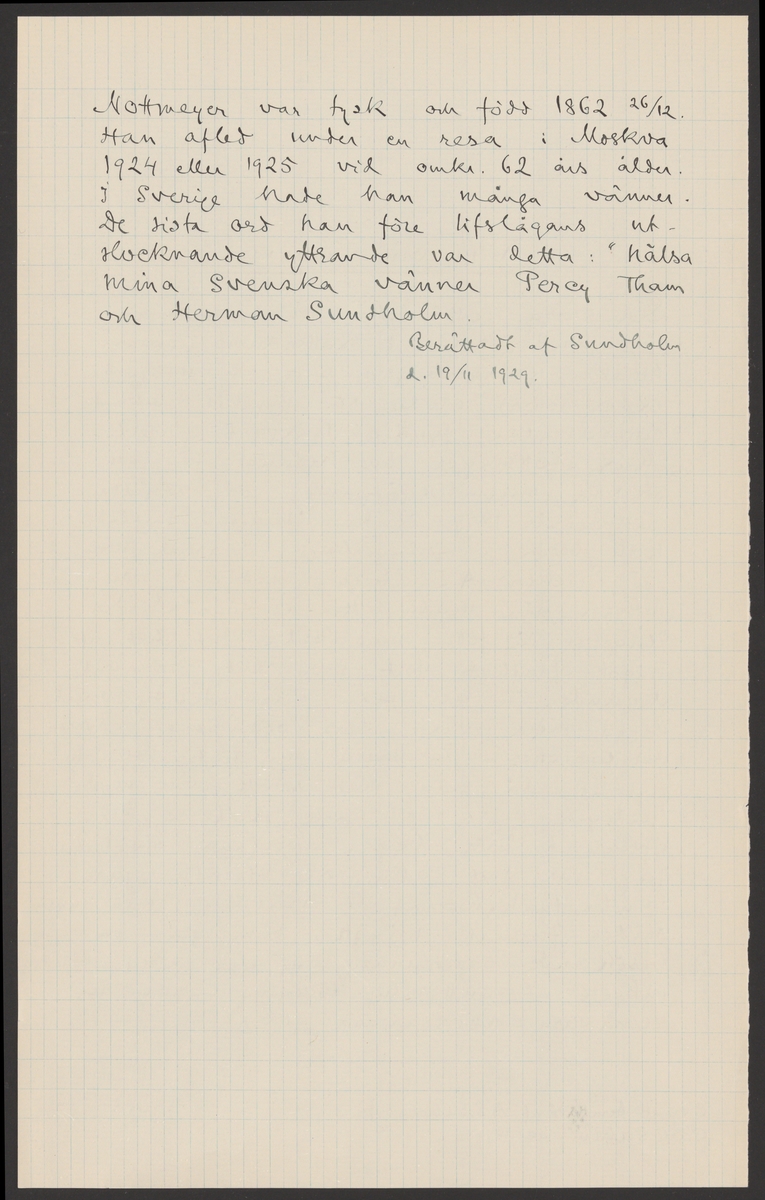 Nottmeyer var tysk och född 1862 26/12.
Han afled under en resa i Moskva
1924 eller 1925 vid omkr. 62 års ålder.
I Sverige hade han många vänner.
De sista ord han före lifslågans ut-
slocknande yttrande var detta: "hälsa
mina Svenska vänner Percy Tham
och Herman Sundholm.
Berättadt af Sundholm
d. 19/11 1929.